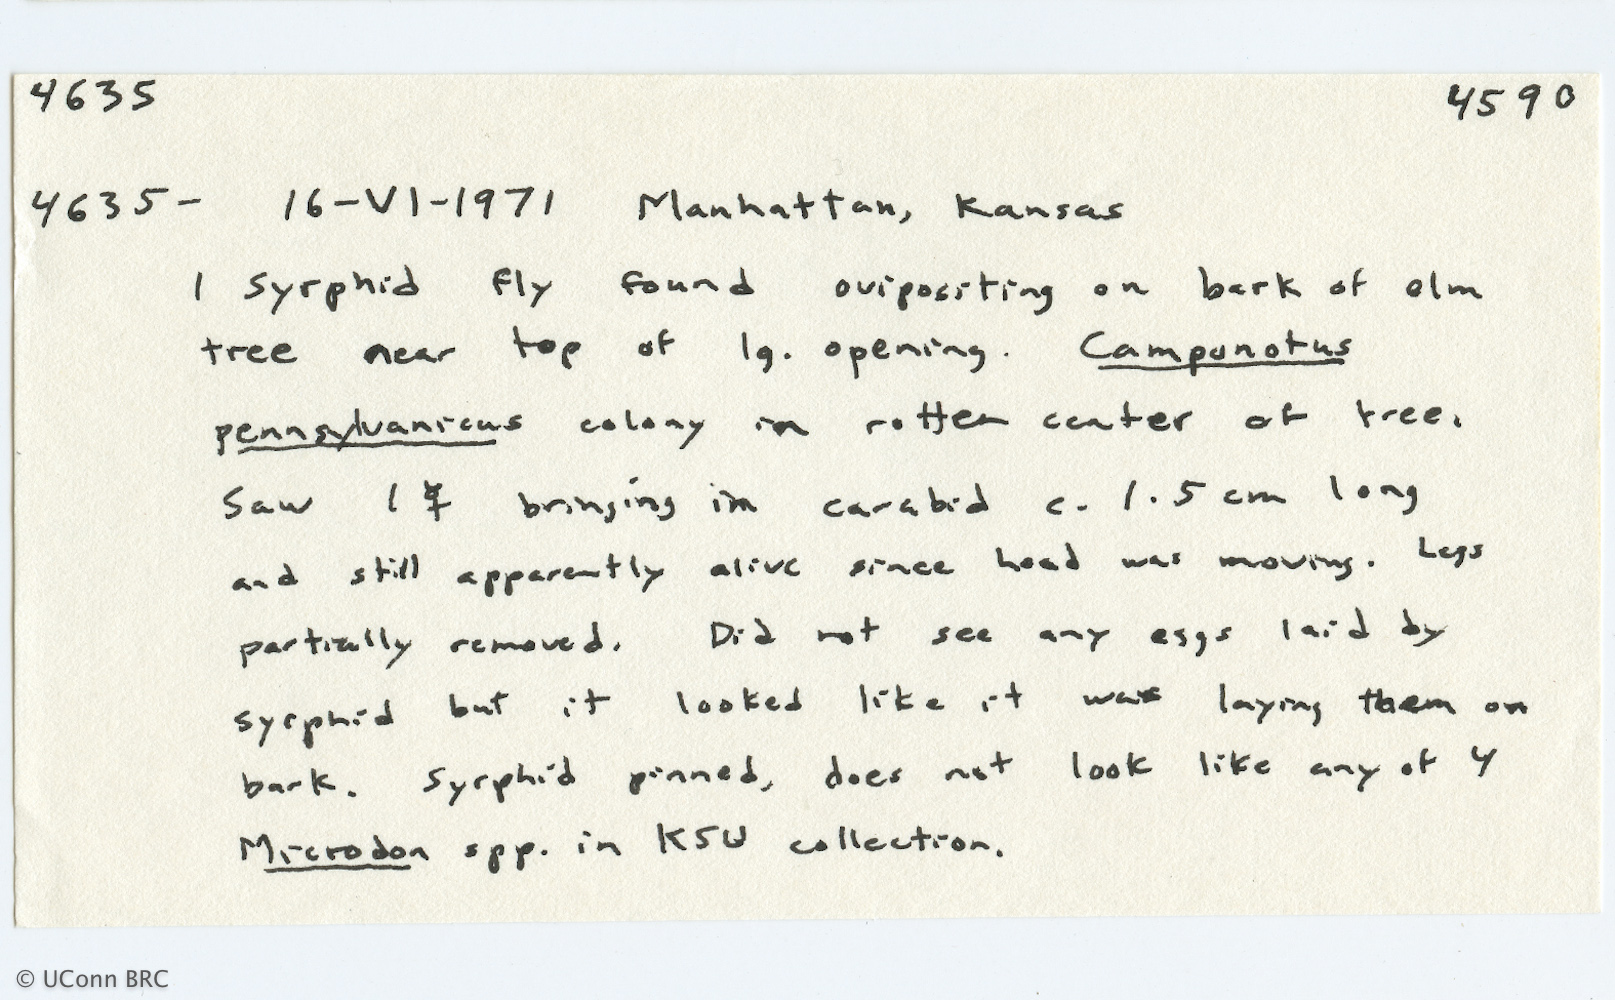 4635 4590
4635- 16-VI-1971 Manhattan, Kansas
1 syrphid fly found ovipositing on bark of elm
tree near top of lg. opening. Camponotus
pennsylvanicus colony in rotten center of tree.
Saw 1 ☿ bringing in carabid c. 1.5 cm long
and still apparently alive since head was moving. Legs
partially removed. Did not see any eggs laid by
syrphid but it looked like it was laying them on
bark. Syrphid pinned, does not look like any of 4
Microdon spp. in KSU collection.
© UConn BRC